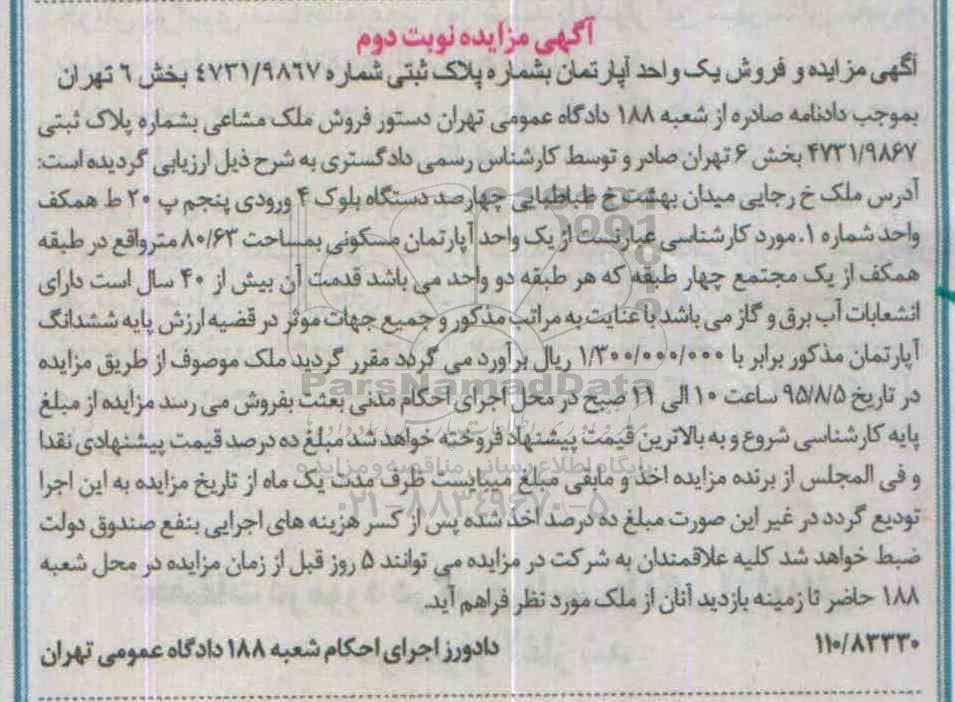 آگهی مزایده نوبت دوم
آگهی مزایده و فروش یک واحد آپارتمان بشماره پلاک ثبتی شماره ۴۷۳۱/۹۸۶۷ بخش ۶ تهران
بموجب دادنامه صادره از شعبه ۱۸۸ دادگاه عمومی تهران دستور فروش ملک مشاعی بشماره پلاک ثبتی
۴۷۳۱/۹۸۶۷ بخش ۶ تهران صادر و توسط کارشناس رسمی دادگستری به شرح ذیل ارزیابی گردیده است:
آدرس ملک خ رجایی میدان بهشت خ طباطبایی چهارصد دستگاه بلوک ۴ ورودی پنجم پ ۲۰ ط همکف
واحد شماره ۱. مورد کارشناسی عبارتست از یک واحد آپارتمان مسکونی بمساحت ۸۰/۶۳ متر واقع در طبقه
همکف از یک مجتمع چهار طبقه که هر طبقه دو واحد می باشد قدمت آن بیش از ۴۰ سال است دارای
انشعابات آب برق و گاز می باشد با عنایت به مراتب مذکور و جمیع جهات موثر در قضیه ارزش پایه ششدانگ
آپارتمان مذکور برابر با ۱/۳۰۰/۰۰۰/۰۰۰ ریال برآورد می گردد مقرر گردید ملک موصوف از طریق مزایده
در تاریخ ۹۵/۸/۵ ساعت ۱۰ الی ۱۱ صبح در محل اجرای احکام مدنی بعثت بفروش می رسد مزایده از مبلغ
پایه کارشناسی شروع و به بالاترین قیمت پیشنهاد فروخته خواهد شد مبلغ ده درصد قیمت پیشنهادی نقدا
و فی المجلس از برنده مزایده اخذ و مابقی مبلغ میبایست ظرف مدت یک ماه از تاریخ مزایده به این اجرا
تودیع گردد در غیر این صورت مبلغ ده درصد اخذ شده پس از کسر هزینه های اجرایی بنفع صندوق دولت
ضبط خواهد شد کلیه علاقمندان به شرکت در مزایده می توانند ۵ روز قبل از زمان مزایده در محل شعبه
۱۸۸ حاضر تا زمینه بازدید آنان از ملک مورد نظر فراهم آید.
۱۱۰/۸۳۳۳۰ دادورز اجرای احکام شعبه ۱۸۸ دادگاه عمومی تهران
ParsNamadData
پایگاه اطلاع رسانی مناقصه و مزایده
۰۲۱-۸۸۳۴۹۶۷۰-۵